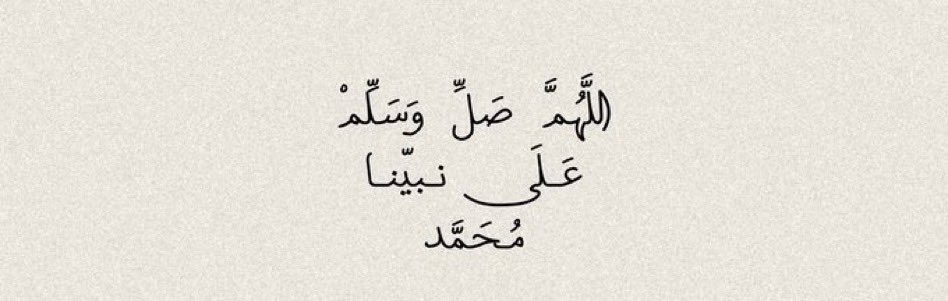 اللَّهُمَّ صَلِّ وَسَلّمْ
عَلَى نبيّنا
مُحَمَّد